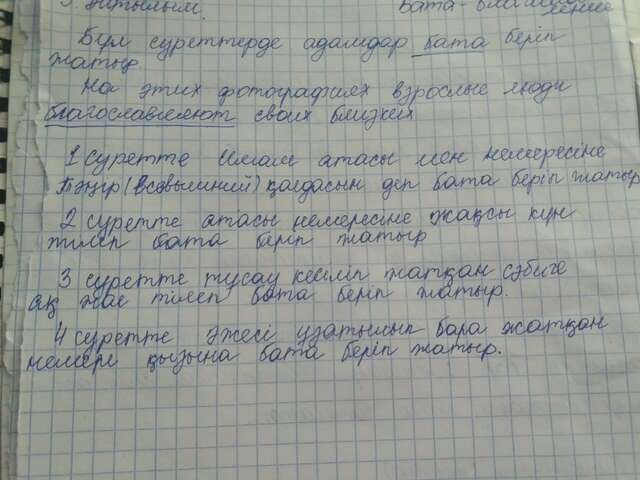 3. Айтылым. Бата - благосло
вение
Бұл суреттерде адамдар бата беріп
жатыр
На этих фотографиях взрослые люди
благославляют своих близких
1 суретте Имам атасы мен немересіне
Тәңір (всевышний) қолдасын деп бата беріп жатыр
2 суретте атасы немересіне жақсы күн
тілеп бата беріп жатыр
3 суретте тұсау кесіліп жатқан сәбиге
ақ жол тілеп бата беріп жатыр.
4 суретте әжесі ұзатылып бара жатқан
немере қызына бата беріп жатыр.